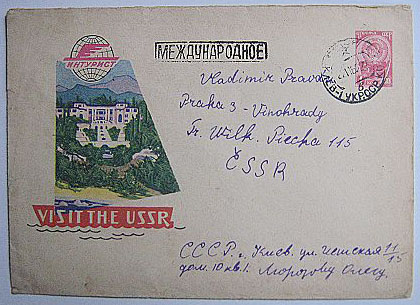 ИНТУРИСТ
МЕЖДУНАРОДНОЕ
Vladimir Pravda
Praha 3 - Vinohrady
Tr. Wilh. Piecka 115
ČSSR
VISIT THE USSR
СССР, Киев. ул.
дом. 10 кв. 1. Морозову Олегу.